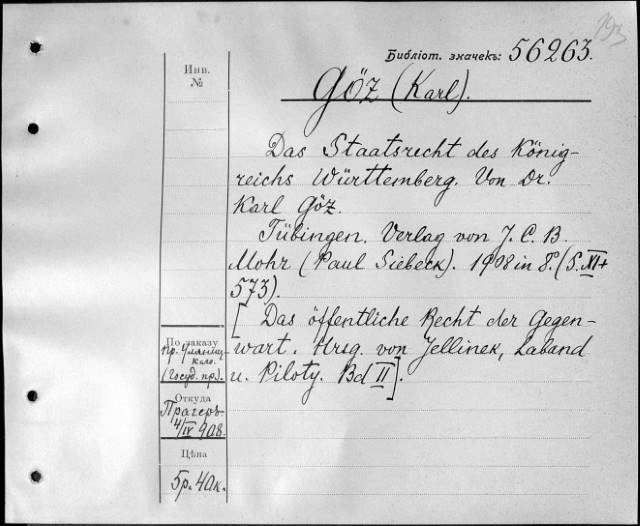 Библіот. значекъ: 56263.
Инв.
№
Göz (Karl).
Das Staatsrecht des König-
reichs Württemberg. Von Dr.
Karl Göz.
Tübingen. Verlag von J. C. B.
Mohr (Paul Siebeck). 1908 in 8º. (S. XI+
573).
[Das öffentliche Recht der Gegen-
wart. Hrsg. von Jellinek, Laband
u. Piloty. Bd II].
По заказу
пр.
(госуд. пр.).
Откуда
Прагеръ
4/IV 908.
Цѣна
5р. 40к.